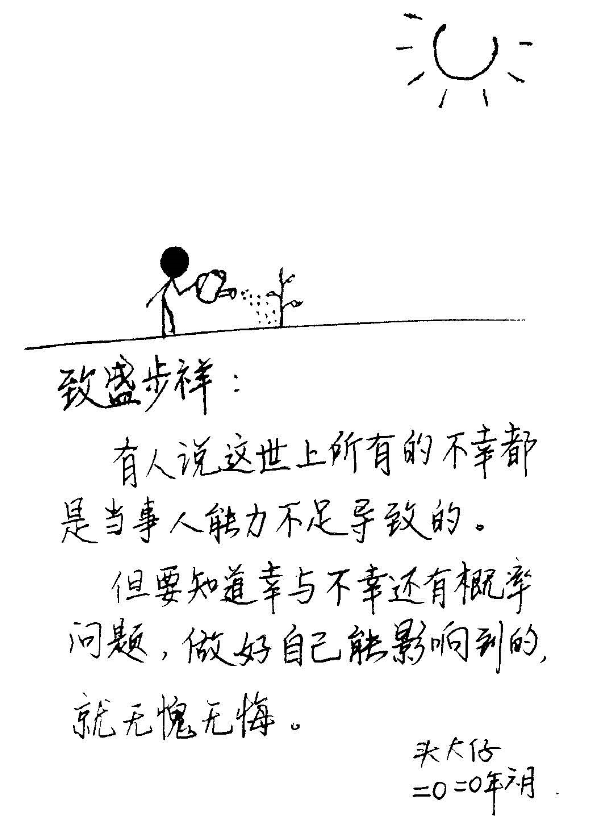 致盛步祥：
有人说这世上所有的不幸都
是当事人能力不足导致的。
但要知道幸与不幸还有概率
问题，做好自己能影响到的，
就无愧无悔。
头大仔
二〇二〇年六月.